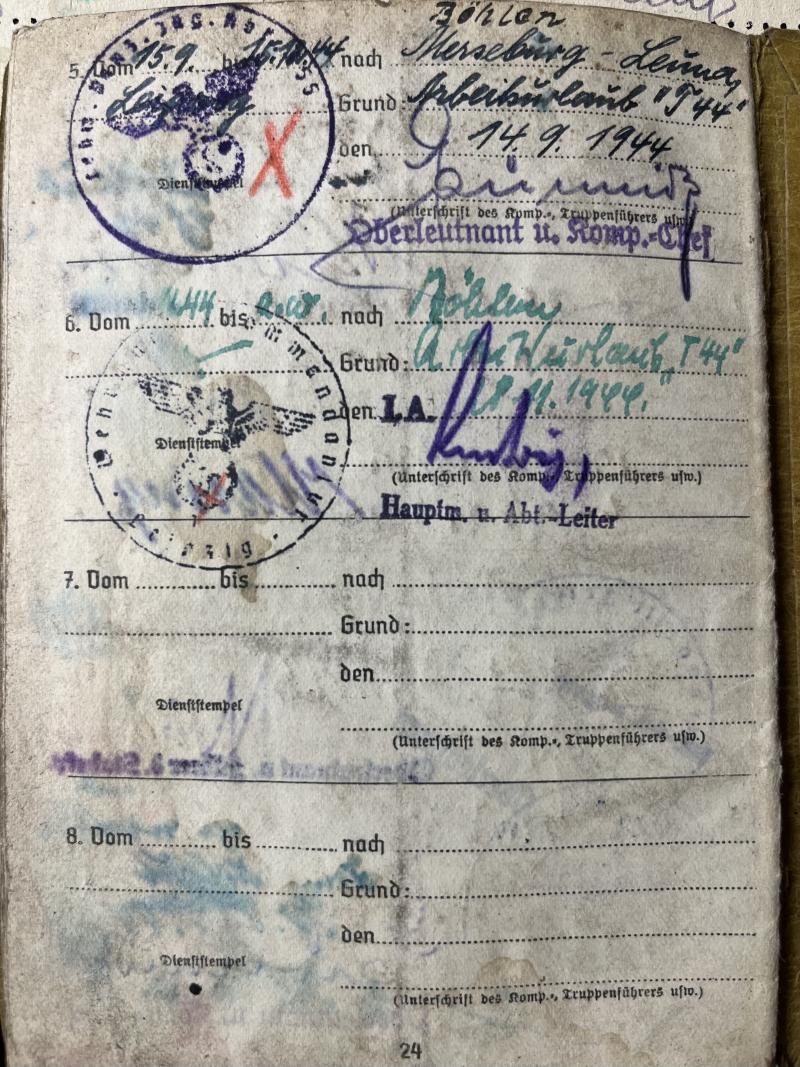 Böhlen
5. Vom 15.9. bis 15.12.44 nach Merseburg - Leuna,
Leipzig Grund: Arbeitsurlaub "T 44"
den 14.9.1944
Dienststempel
(Unterschrift des Komp.-, Truppenführers usw.)
Oberleutnant u. Komp.-Chef
6. Vom bis nach Böhlen
Grund: Arbeitsurlaub „T 44"
den I.A. 18.11.1944.
Dienststempel
(Unterschrift des Komp.-, Truppenführers usw.)
Leipzig
Hauptm. u. Abt.-Leiter
7. Vom bis nach
Grund:
den
Dienststempel
(Unterschrift des Komp.-, Truppenführers usw.)
8. Vom bis nach
Grund:
den
Dienststempel
(Unterschrift des Komp.-, Truppenführers usw.)
24